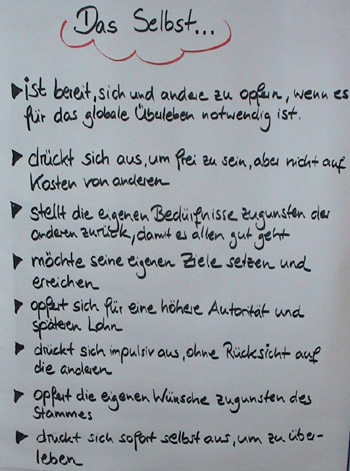 Das Selbst...
ist bereit, sich und andere zu opfern, wenn es
für das globale Überleben notwendig ist.
drückt sich aus, um frei zu sein, aber nicht auf
Kosten von anderen
stellt die eigenen Bedürfnisse zugunsten der
anderen zurück, damit es allen gut geht
möchte seine eigenen Ziele setzen und
erreichen
opfert sich für eine höhere Autorität und
späteren Lohn
drückt sich impulsiv aus, ohne Rücksicht auf
die anderen
opfert die eigenen Wünsche zugunsten des
Stammes
drückt sich sofort selbst aus, um zu über-
leben